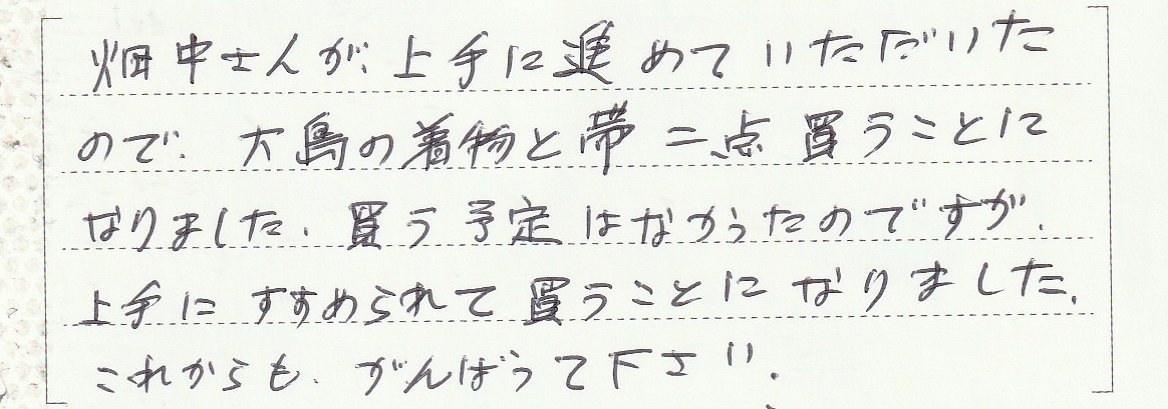 畑中さんが、上手に進めていただいた
ので、大島の着物と帯二点買うことに
なりました、買う予定はなかったのですが、
上手にすすめられて買うことになりました、
これからも、がんばって下さい、